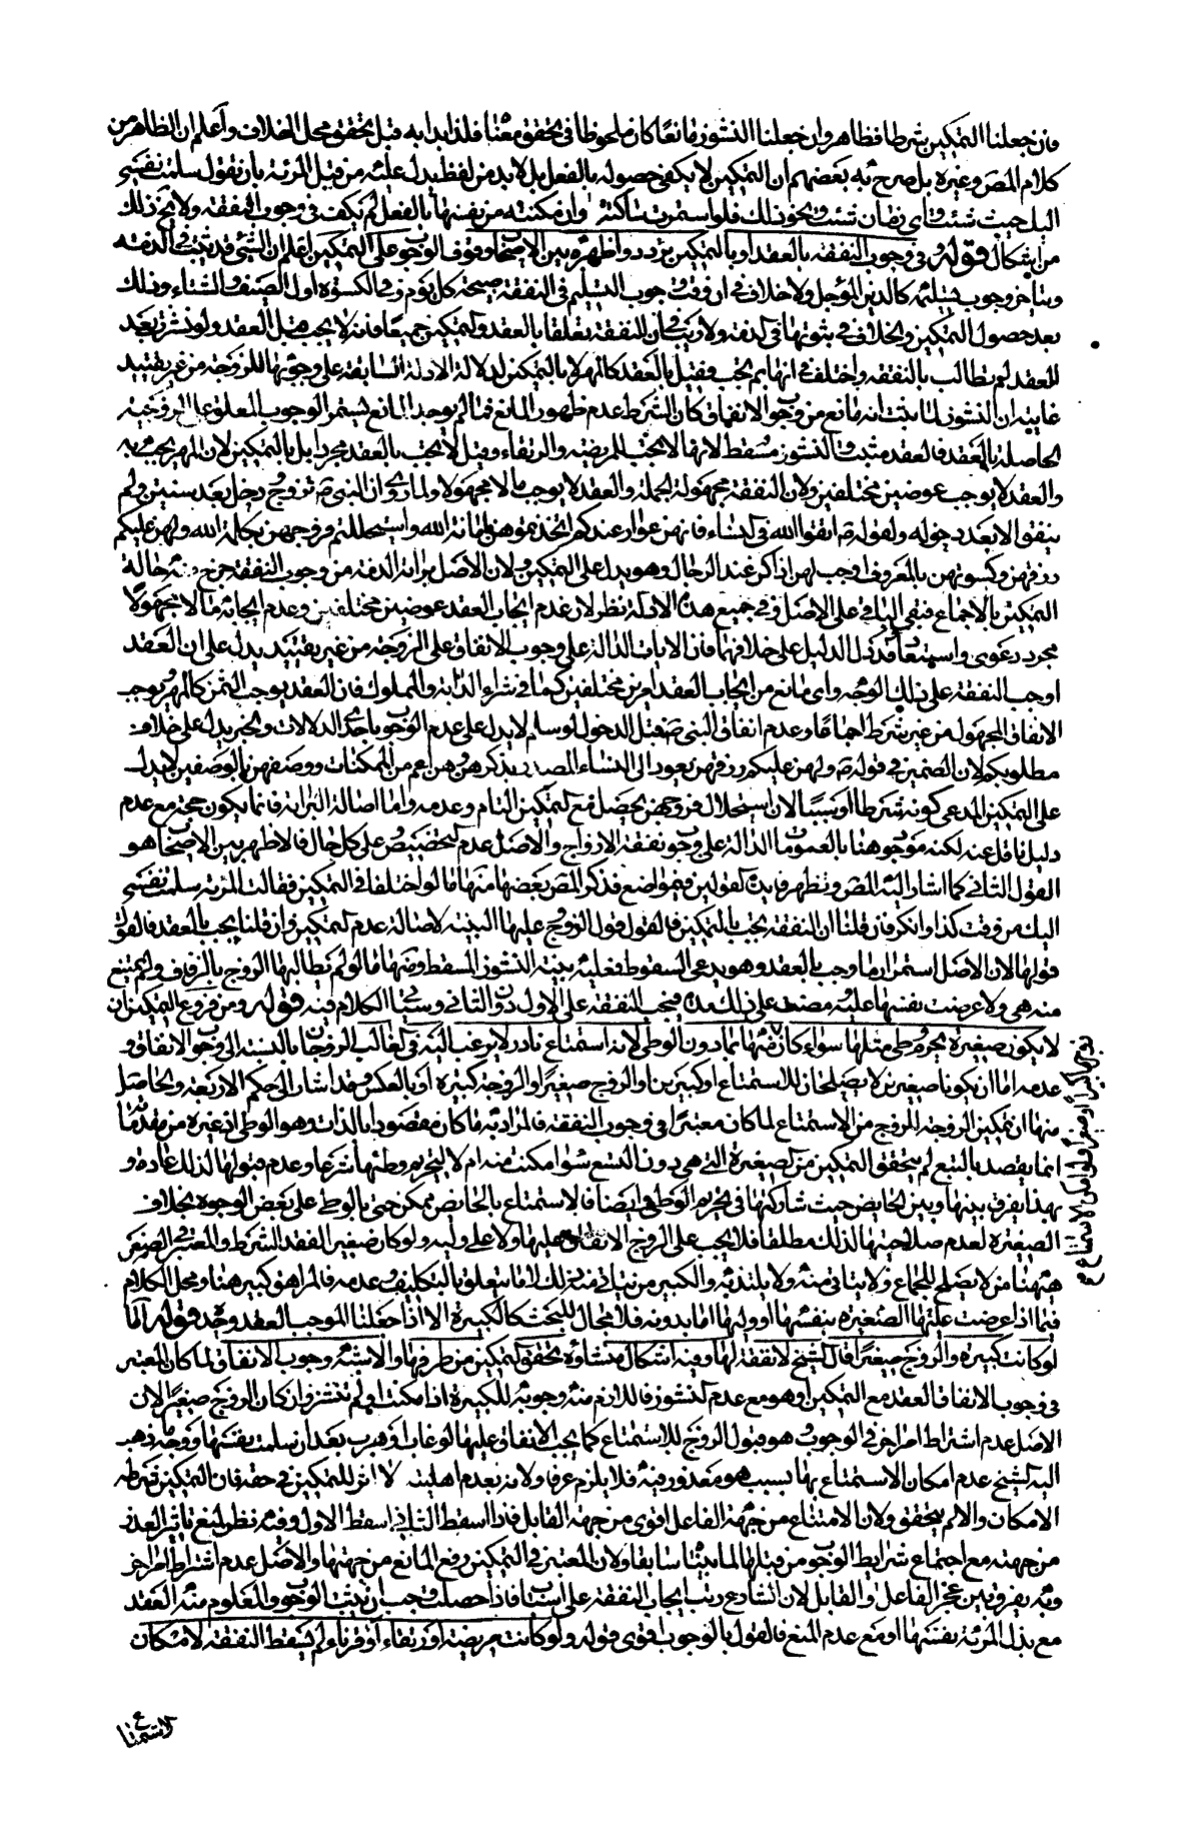 فان جعلنا التمكين شرطا فظاهر وان جعلنا النشوز مانعا كان ملحوظا في تحقق معناه فلذا بدا به قبل تحقق محل الخلاف واعلم ان الظاهر من
كلام المص وغيره بل صرح به بعضهم ان التمكين لا يكفي حصوله بالفعل بل لا بد من لفظ يدل عليه من قبل المرئة بان تقول سلمت نفسي
اليك حيث شئت واي زمان شئت ونحو ذلك فلو استمرت ساكتة وان مكنته من نفسها بالفعل لم يكف في وجوب النفقة ولا يخ ذلك
من اشكال قوله وفي وجوب النفقة بالعقد او بالتمكين تردد واظهره بين الاصحاب وقوف الوجوب على التمكين اعلم ان الشئ قد يثبت في الذمة
ويتاخر وجوب تسليمه كالدين المؤجل ولا خلاف في ان وقت وجوب التسليم في النفقة صبيحة كل يوم وفي الكسوة اول الصيف والشتاء وذلك
بعد حصول التمكين والخلاف في ثبوتها في الذمة ولا ريب في ان للنفقة تعلقا بالعقد والتمكين جميعا فانه لا يجب قبل العقد ولو نشزت بعد
العقد لم تطالب بالنفقة واختلف في انها بم تجب فقيل بالعقد كالمهر لا بالتمكين لدلالة الادلة السابقة على وجوبها للزوجة من غير تقييد
غايته ان النشوز لما ثبت انه مانع من وجوب الانفاق كان الشرط عدم ظهور المانع فما لم يوجد المانع يستمر الوجوب المعلق على الزوجية
الحاصلة بالعقد فالعقد مثبت والنشوز مسقط لانها لا تجب للمريضة والرتقاء وقيل لا تجب بالعقد مجردا بل بالتمكين لان المهر يجب به
والعقد لا يوجب عوضين مختلفين ولان النفقة مجهولة الجملة والعقد لا يوجب مالا مجهولا ولما روي ان النبي ص تزوج ودخل بعد سنين ولم
ينفق الا بعد دخوله ولقوله ص اتقوا الله في النساء فانهن عوار عندكم اتخذتموهن بامانة الله واستحللتم فروجهن بكلمة الله ولهن عليكم
رزقهن وكسوتهن بالمعروف اوجب لهن اذا كن عند الرجال وهو يدل على التمكين ولان الاصل براءة الذمة من وجوب النفقة خرج منه حالة
التمكين بالاجماع فبقي الباقي على الاصل وفي جميع هذه الادلة نظر لان عدم ايجاب العقد عوضين مختلفين وعدم ايجابه مالا مجهولا
مجرد دعوى واستبعاد قد دل الدليل على خلافهما فان الايات الدالة على وجوب الانفاق على الزوجة من غير تقييد يدل على ان العقد
اوجب النفقة على ذلك الوجه واي مانع من ايجاب العقد امرين مختلفين كما في شراء الدابة والمملوك فان العقد يوجب الثمن كالمهر ويوجب
الانفاق المجهولة من غير شرط اجماعا وعدم انفاق النبي ص قبل الدخول لو سلم لا يدل على عدم الوجوب باحدى الدلالات والخبر يدل على خلاف
مطلوبكم لان الضمير في قوله ص ولهن عليكم رزقهن يعود الى النساء المصدر بذكرهن وهن اعم من الممكنات ووصفهن بالوصفين لا يدل
على التمكين المدعى كونه شرطا او سببا لان استحلال فروجهن يحصل مع التمكين التام وعدمه واما اصالة البراءة فانما يكون حجة مع عدم
دليل ناقل عنه لكنه موجود هنا بالعمومات الدالة على وجوب نفقة الازواج والاصل عدم التخصيص وعلى كل حال فالاظهر بين الاصحاب هو
القول الثاني كما اشار اليه المص وتظهر فايدة القولين في مواضع قد ذكر المص بعضها منها ما لو اختلفا في التمكين فقالت المرئة سلمت نفسي
اليك من وقت كذا وانكر فان قلنا ان النفقة تجب بالتمكين فالقول قول الزوج وعليها البينة لاصالة عدم التمكين وان قلنا يجب بالعقد فالقول
قولها لان الاصل استمرار ما وجب بالعقد وهو يدعي السقوط فعليه بينة النشوز المسقط ومنها ما لو لم يطالبها الزوج بالزفاف ولم تمتنع
منه هي ولا عرضت نفسها عليه ومضت على ذلك مدة فتجب النفقة على الاول دون الثاني وسياتي الكلام فيه قوله ومن فروع التمكين ان
لا تكون صغيرة يحرم وطي مثلها سواء كان زوجها كبيرا او صغيرا ولو امكن الاستمتاع منها بما دون الوطي لانه استمتاع نادر لا يرغب اليه في الغالب الزوجان بالنسبة الى وجوب الانفاق و
عدمه اما ان يكونا صغيرين لا يصلحان للاستمتاع او كبيرين او الزوج صغيرا والزوجة كبيرة او بالعكس وقد اشار الى حكم الاربعة والحاصل
منها ان تمكين الزوجة الزوج من الاستمتاع لما كان معتبرا في وجوب النفقة فالمراد به ما كان مقصودا بالذات وهو الوطي اذ غيره من مقدماته
انما يقصد بالتبع لم يتحقق التمكين من الصغيرة التي هي دون التسع سواء مكنت منه ام لا لتحريم وطئها شرعا وعدم قبولها لذلك عادة و
بهذا يفرق بينها وبين الحايض حيث شاركتها في تحريم الوطي ايضا فالاستمتاع بالحايض ممكن حتى بالوطي على بعض الوجوه بخلاف
الصغيرة لعدم صلاحيتها لذلك مطلقا فلا يجب على الزوج الانفاق عليها ولا على وليه ولو كان صغيرا لفقد الشرط والمعتبر في الصغير
هيهنا من لا يصلح للجماع ولا يتاتى منه ولا يلتذ به والكبير من يتاتى منه ذلك لا ما يتعلق بالتكليف وعدمه فالمراهق كبير هنا ومحل الكلام
فيما اذا عرضت عليه الصغيرة بنفسها او وليها اما بدونه فلا مجال للبحث كالكبيرة الا اذا جعلنا الموجب العقد وحده قوله اما
لو كانت كبيرة والزوج صغيرا قال الشيخ لا نفقة لها وفيه اشكال منشاؤه تحقق التمكين من طرفها والاشبه وجوب الانفاق لما كان المعتبر
في وجوب الانفاق العقد مع التمكين او هو مع عدم النشوز فاللازم منه وجوبه للكبيرة اذا مكنت او لم تنشز وان كان الزوج صغيرا لان
الاصل عدم اشتراط امر اخر في الوجوب وهو قبول الزوج للاستمتاع كما يجب الانفاق عليها لو غاب او هرب بعد ان سلمت نفسها ووجه ما ذهب
اليه الشيخ عدم امكان الاستمتاع بها بسبب هو معذور فيه فلا يلزم غرما ولانه بعدم اهليته لا اثر للتمكين في حقه فان التمكين شرطه
الامكان والا لم يتحقق ولان الامتناع من جهة الفاعل اقوى من جهة القابل فاذا اسقط الثاني اسقط الاول وفيه نظر لمنع تاثير العذر
من جهته مع اجتماع شرايط الوجوب من قبلها لما بيناه سابقا ولان المعتبر في التمكين رفع المانع من جهتها والاصل عدم اشتراط امر اخر
وبه يفرق بين عجز الفاعل والقابل لان الشارع رتب ايجاب النفقة على اسباب فاذا حصلت وجب ان يثبت الوجوب والمعلوم منه العقد
مع بذل المرئة نفسها او مع عدم المنع فالقول بالوجوب اقوى قوله ولو كانت مريضة او رتقاء او قرناء لم يسقط النفقة لامكان
الاستمتاع